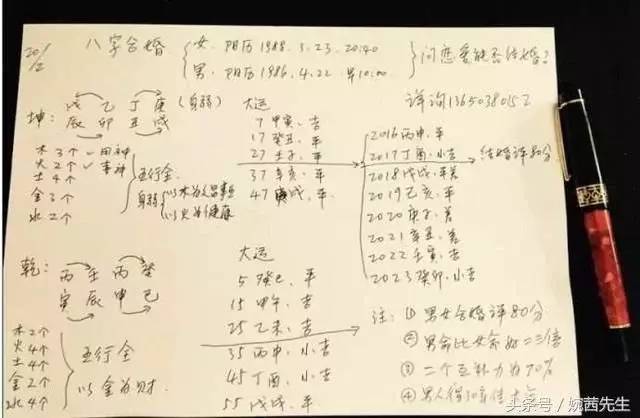 20/2
八字合婚
女:阳历1988.3.23,20:40
男:阳历1986.4.22 早10:00
问恋爱能否结婚?
坤:
戊乙丁庚
辰卯丑戌
(身弱)
木3个✓用神
火2个✓喜神
土4个
金3个
水2个
五行全
身弱
以木为
以火为健康
大运
7甲寅、吉
17癸丑、平
27壬子、平
37辛亥、平
47庚戌、平
详询13650380152
2016丙申.平
2017丁酉.小吉
2018戊戌.平
2019己亥.平
2020庚子.
2021辛丑.
2022壬寅.吉
2023癸卯.小吉
结婚评80分
乾:
丙壬丙癸
寅辰申巳
木2个
火4个
土4个
金2个
水4个
五行全
以金为财
大运
5癸巳、平
15甲午、吉
25乙未、吉
35丙申、小吉
45丁酉、小吉
55戊戌、平
注:①男女合婚评80分
②男命比女命好二三倍
③二个互补力为70%
④男人得
头条号/婉茜先生